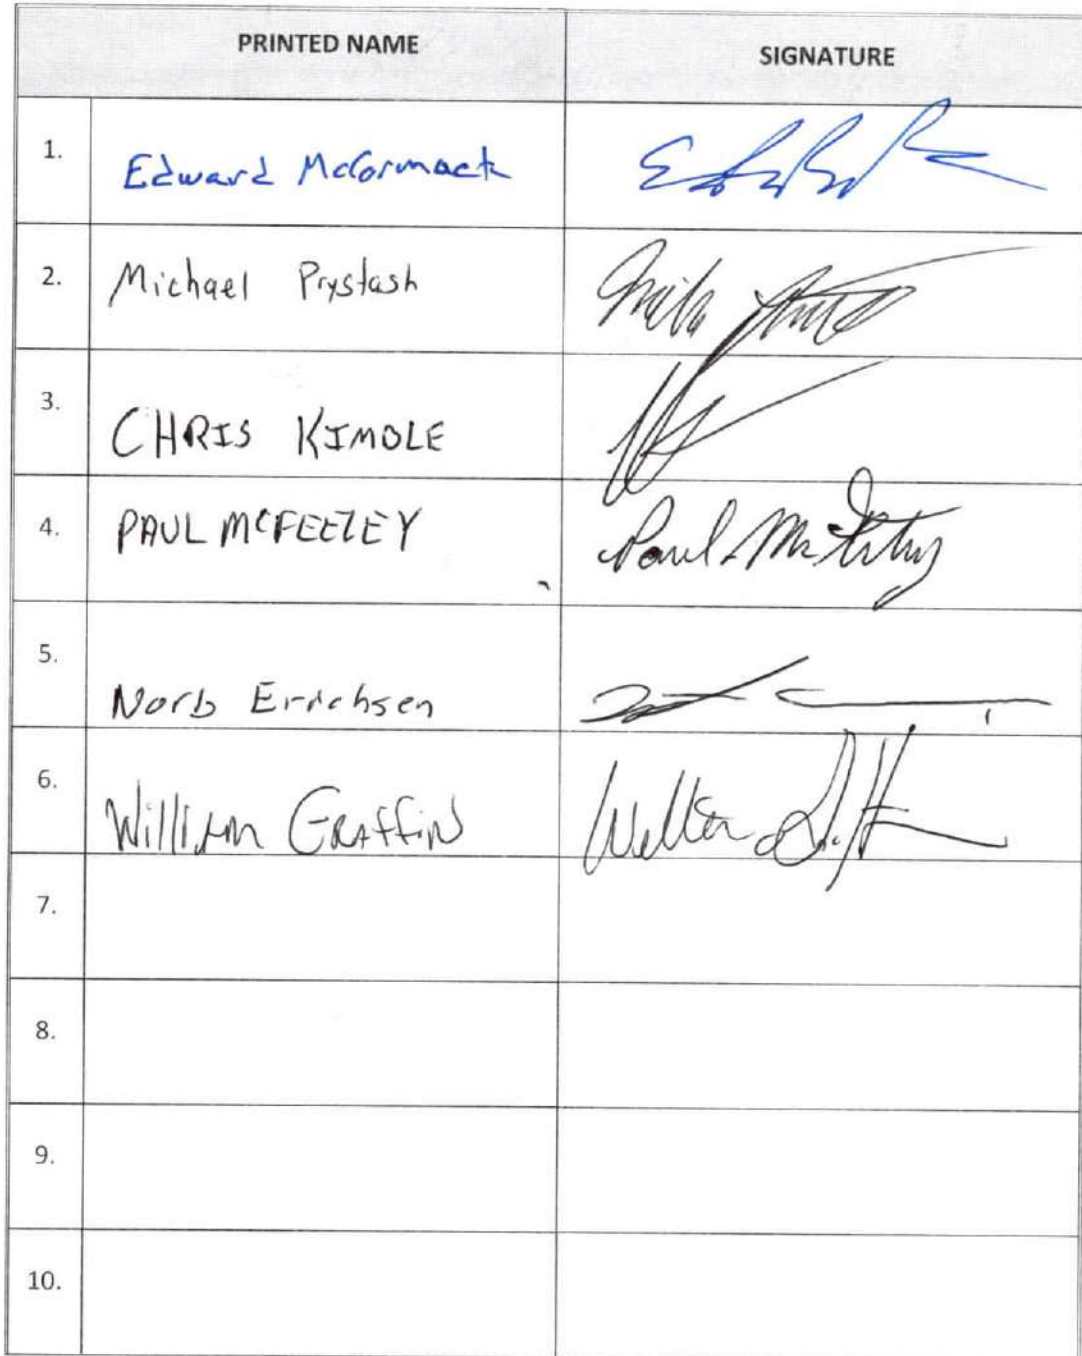 PRINTED NAME SIGNATURE
1. Edward McCormack
2. Michael Prystash
3. CHRIS KIMOLE
4. PAUL MCFEELEY Paul McFeeley
5. Norb Errichsen
6. William Graffin
7.
8.
9.
10.